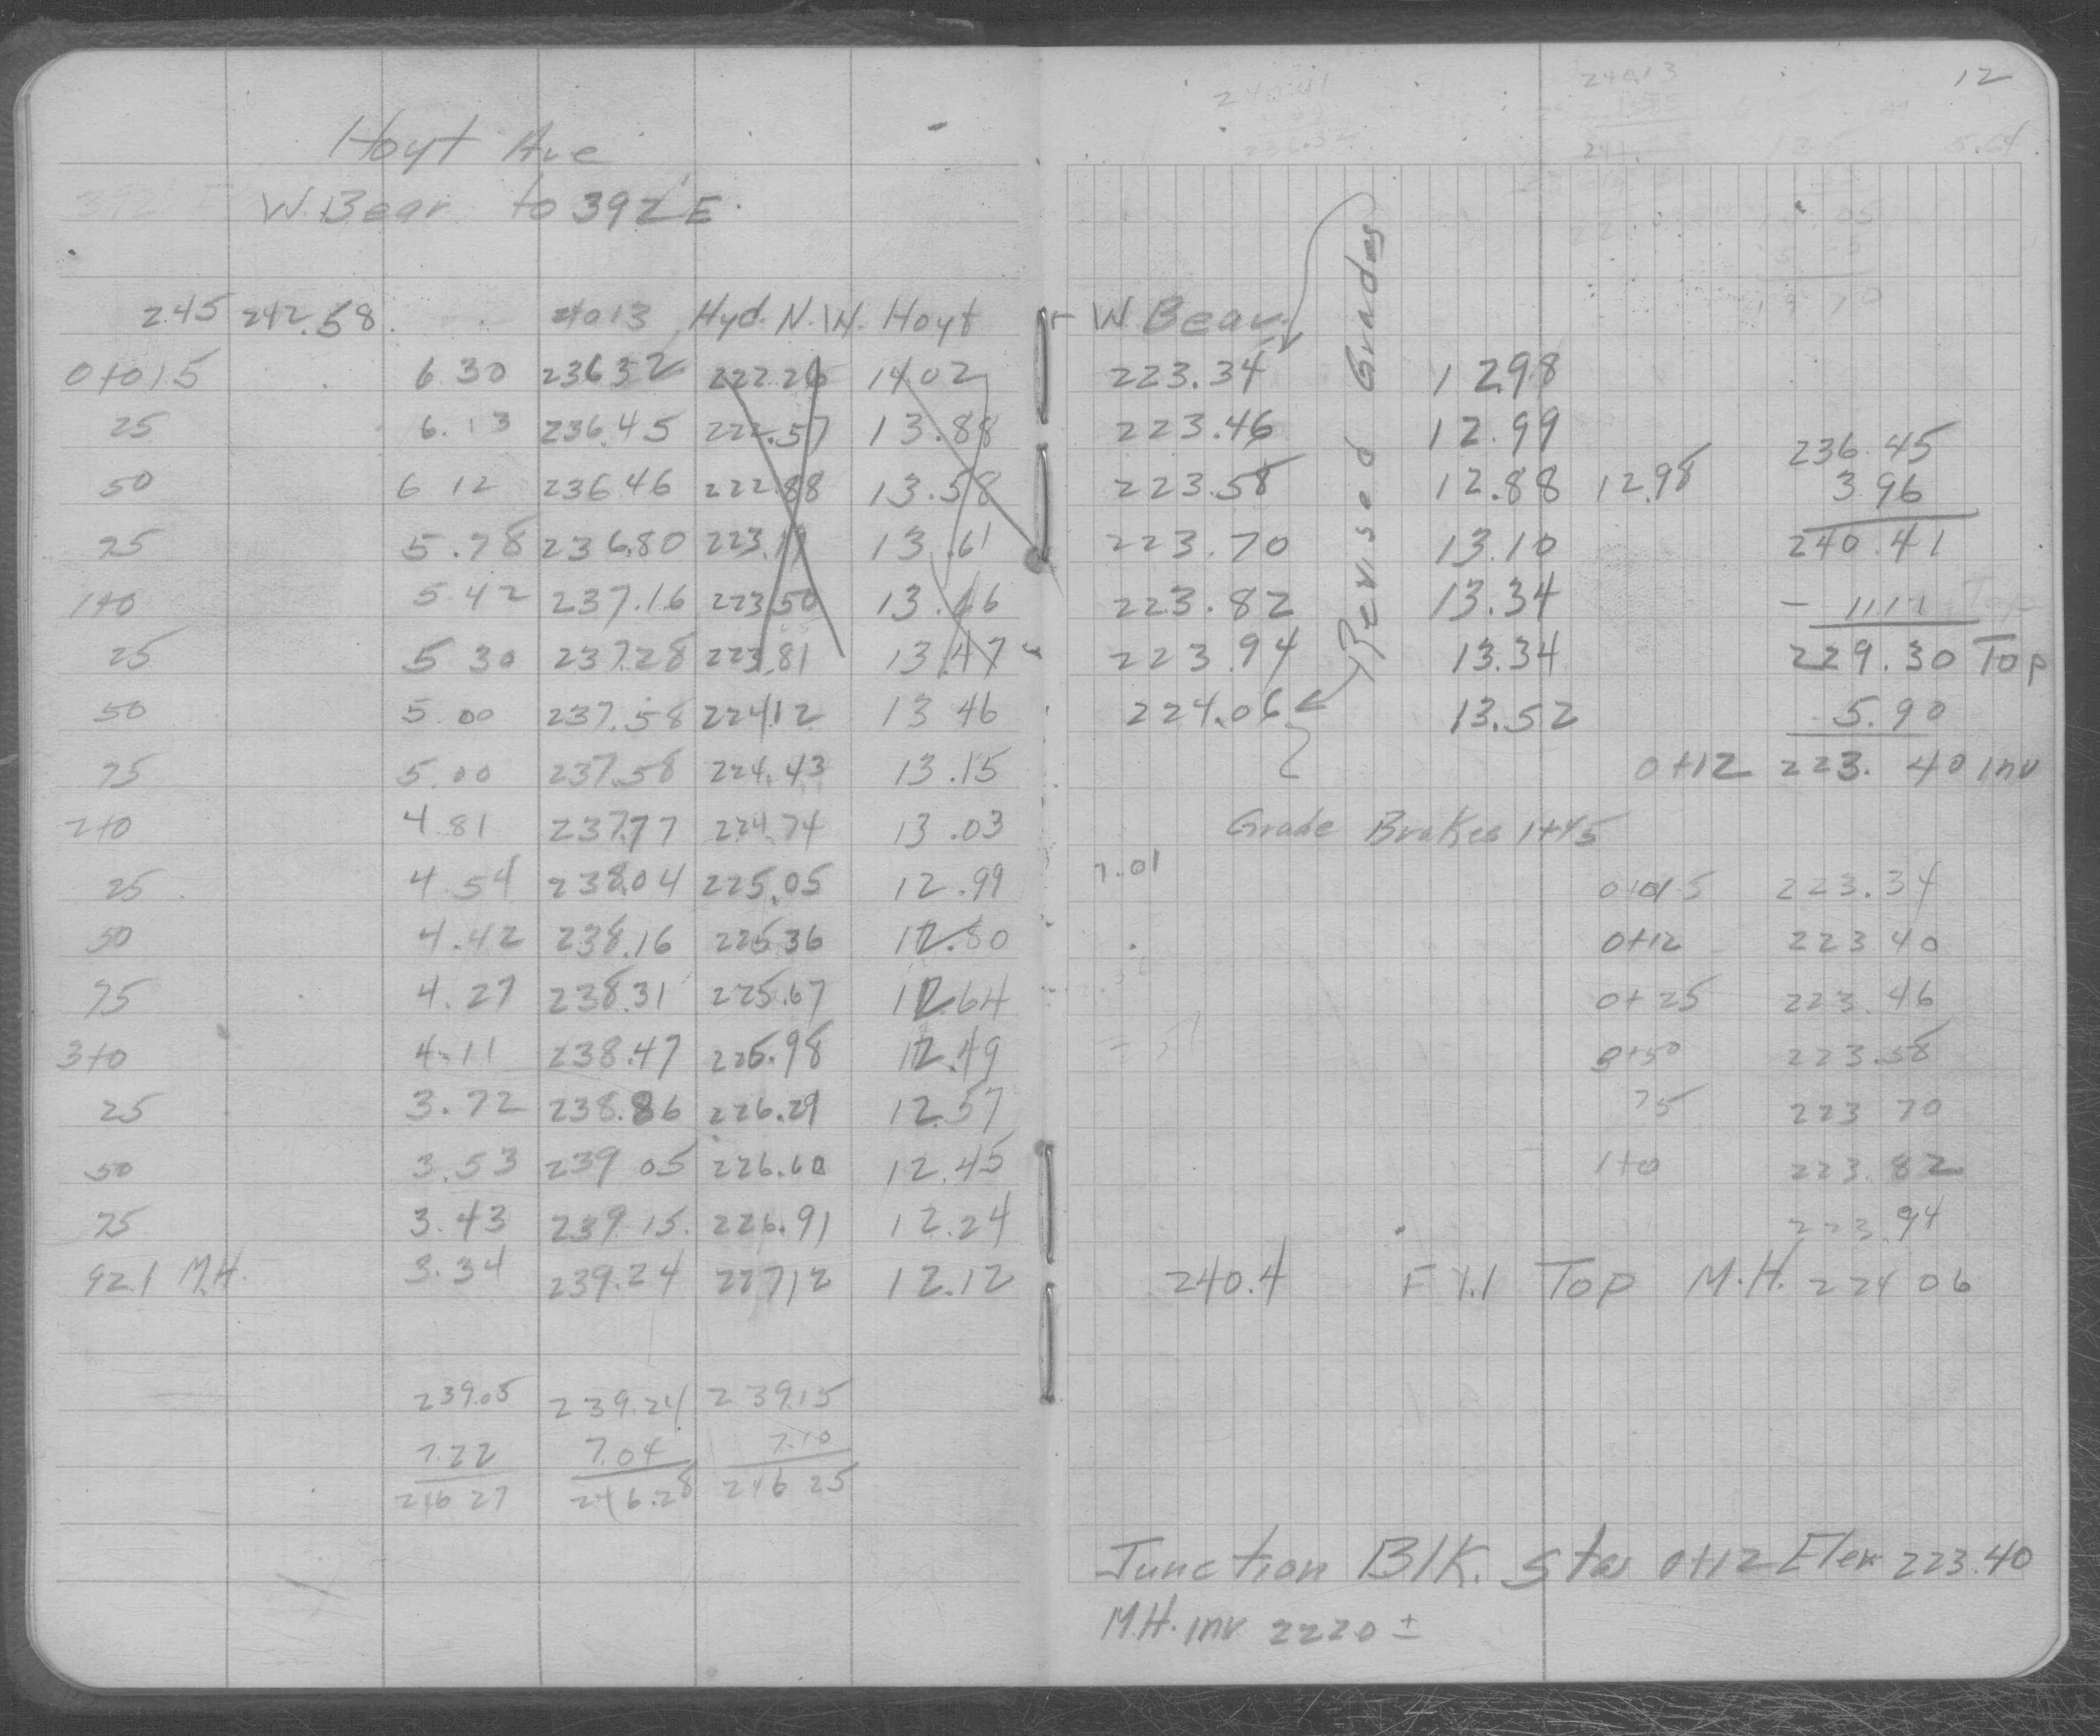 12
Hoyt Ave
W. Bear to 392' E.
2.45 242.58 240.13 Hyd. N.W. Hoyt W Bear.
0+015 6.30 236.32 222.26 14.02 223.34 12.98
25 6.13 236.45 222.57 13.88 223.46 12.99
50 6.12 236.46 222.88 13.58 223.58 12.88 12.98
75 5.78 236.80 223.19 13.61 223.70 13.10
1+0 5.42 237.16 223.50 13.66 223.82 13.34
25 5.30 237.28 223.81 13.47 223.94 13.34
50 5.00 237.58 224.12 13.46 224.06 13.52
75 5.00 237.58 224.43 13.15
2+0 4.81 237.77 224.74 13.03
25 4.54 238.04 225.05 12.99
50 4.42 238.16 225.36 12.80
75 4.27 238.31 225.67 12.64
3+0 4.11 238.47 225.98 12.49
25 3.72 238.86 226.29 12.57
50 3.53 239.05 226.60 12.45
75 3.43 239.15 226.91 12.24
92.1 M.H. 3.34 239.24 227.12 12.12
239.05 239.24 239.15
7.22 7.04 7.10
246.27 246.28 246.25
Revised Grades
236.45
3.96
240.41
- 11.11
229.30 Top
5.90
0+12 223.40 inv
Grade Brakes 1+45
7.01
0+015 223.34
0+12 223.40
0+25 223.46
0+50 223.58
75 223.70
1+0 223.82
223.94
240.4 Top M.H. 224.06
Junction Blk. Sta 0+12 Elev 223.40
M.H. inv 222.0 ±